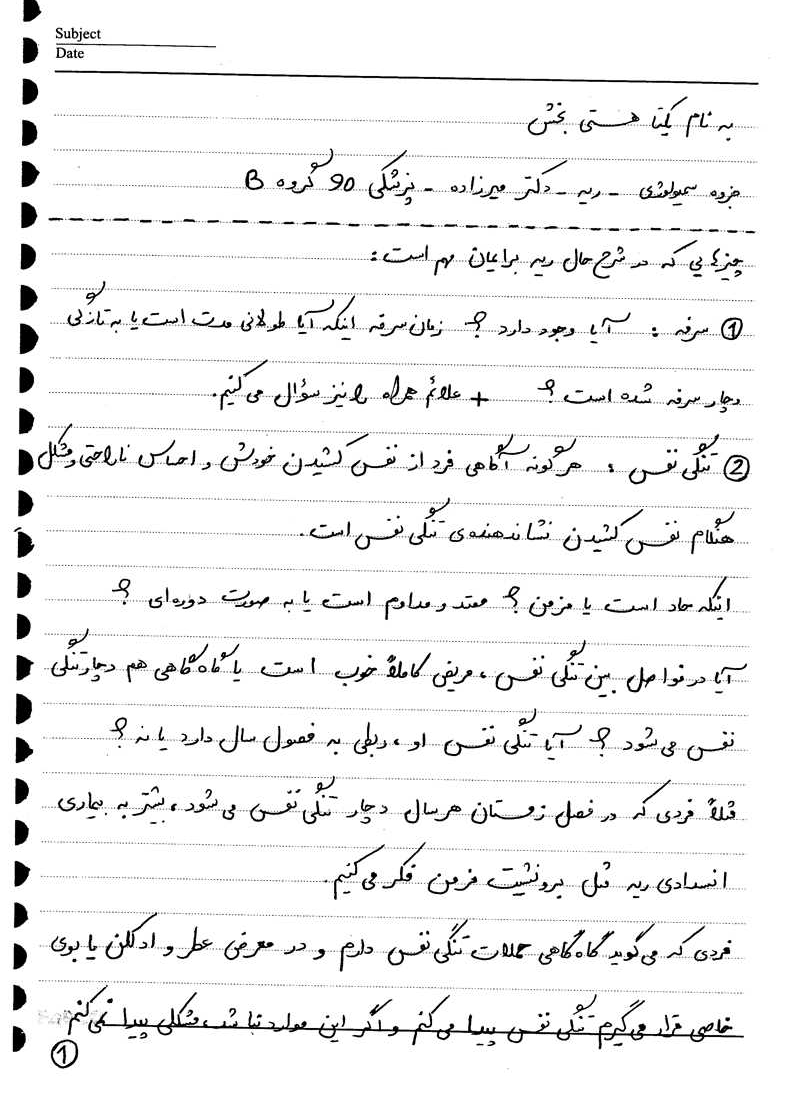 Subject
Date
به نام یکتا هستی بخش
جزوه سمیولوژی - ریه - دکتر میرزاده - پزشکی 90 گروه B
چیزهایی که در شرح حال ریه برایمان مهم است:
① سرفه : آیا وجود دارد؟ زمان سرفه اینکه آیا طولانی مدت است یا به تازگی
دچار سرفه شده است؟ + علائم همراه را نیز سؤال می کنیم.
② تنگی نفس : هرگونه آگاهی فرد از نفس کشیدن خودش و احساس ناراحتی و مشکل
هنگام نفس کشیدن نشاندهنده ی تنگی نفس است.
اینکه حاد است یا مزمن؟ ممتد و مداوم است یا به صورت دوره ای؟
آیا در فواصل بین تنگی نفس، مریض کاملاً خوب است یا گاه گاهی هم دچار تنگی
نفس می شود؟ آیا تنگی نفس او، ربطی به فصول سال دارد یا نه؟
مثلاً فردی که در فصل زمستان هر سال دچار تنگی نفس می شود، بیشتر به بیماری
انسدادی ریه مثل برونشیت مزمن فکر می کنیم.
فردی که می گوید گاه گاهی حملات تنگی نفس دارم و در معرض عطر و ادکلن یا بوی
خاصی قرار می گیرم تنگی نفس پیدا می کنم و اگر این موارد نباشد، مشکلی پیدا نمی کنم
①